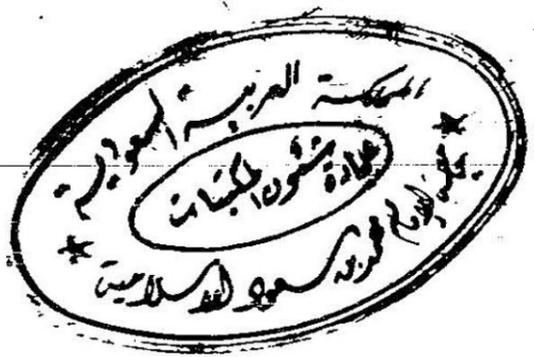 المملكة العربية السعودية
عمادة شئون المكتبات
جامعة الإمام محمد بن سعود الاسلامية